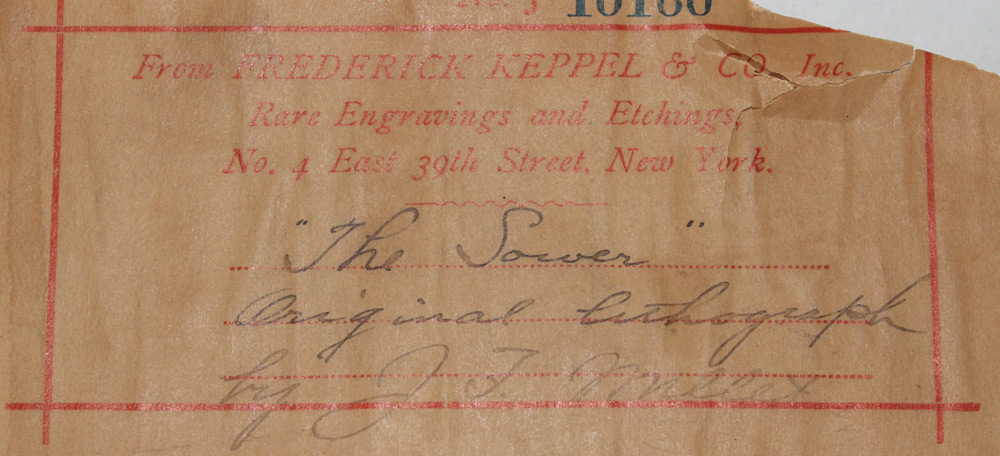 No. 3 10160
From FREDERICK KEPPEL & CO. Inc.
Rare Engravings and Etchings,
No. 4 East 39th Street, New York.
"The Sower"
Original lithograph
by J F Millet